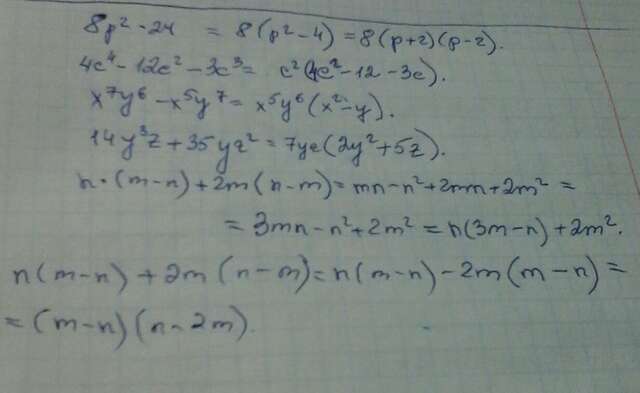 8p² - 24 = 8(p² - 4) = 8(p+2)(p-2).
4c⁴ - 12c² - 3c³ = c²(4c² - 12 - 3c).
x⁷y⁶ - x⁵y⁷ = x⁵y⁶(x² - y).
14y³z + 35yz² = 7yz(2y² + 5z).
n·(m-n) + 2m(n-m) = mn - n² + 2mn + 2m² =
= 3mn - n² + 2m² = n(3m-n) + 2m².
n(m-n) + 2m(n-m) = n(m-n) - 2m(m-n) =
= (m-n)(n-2m).